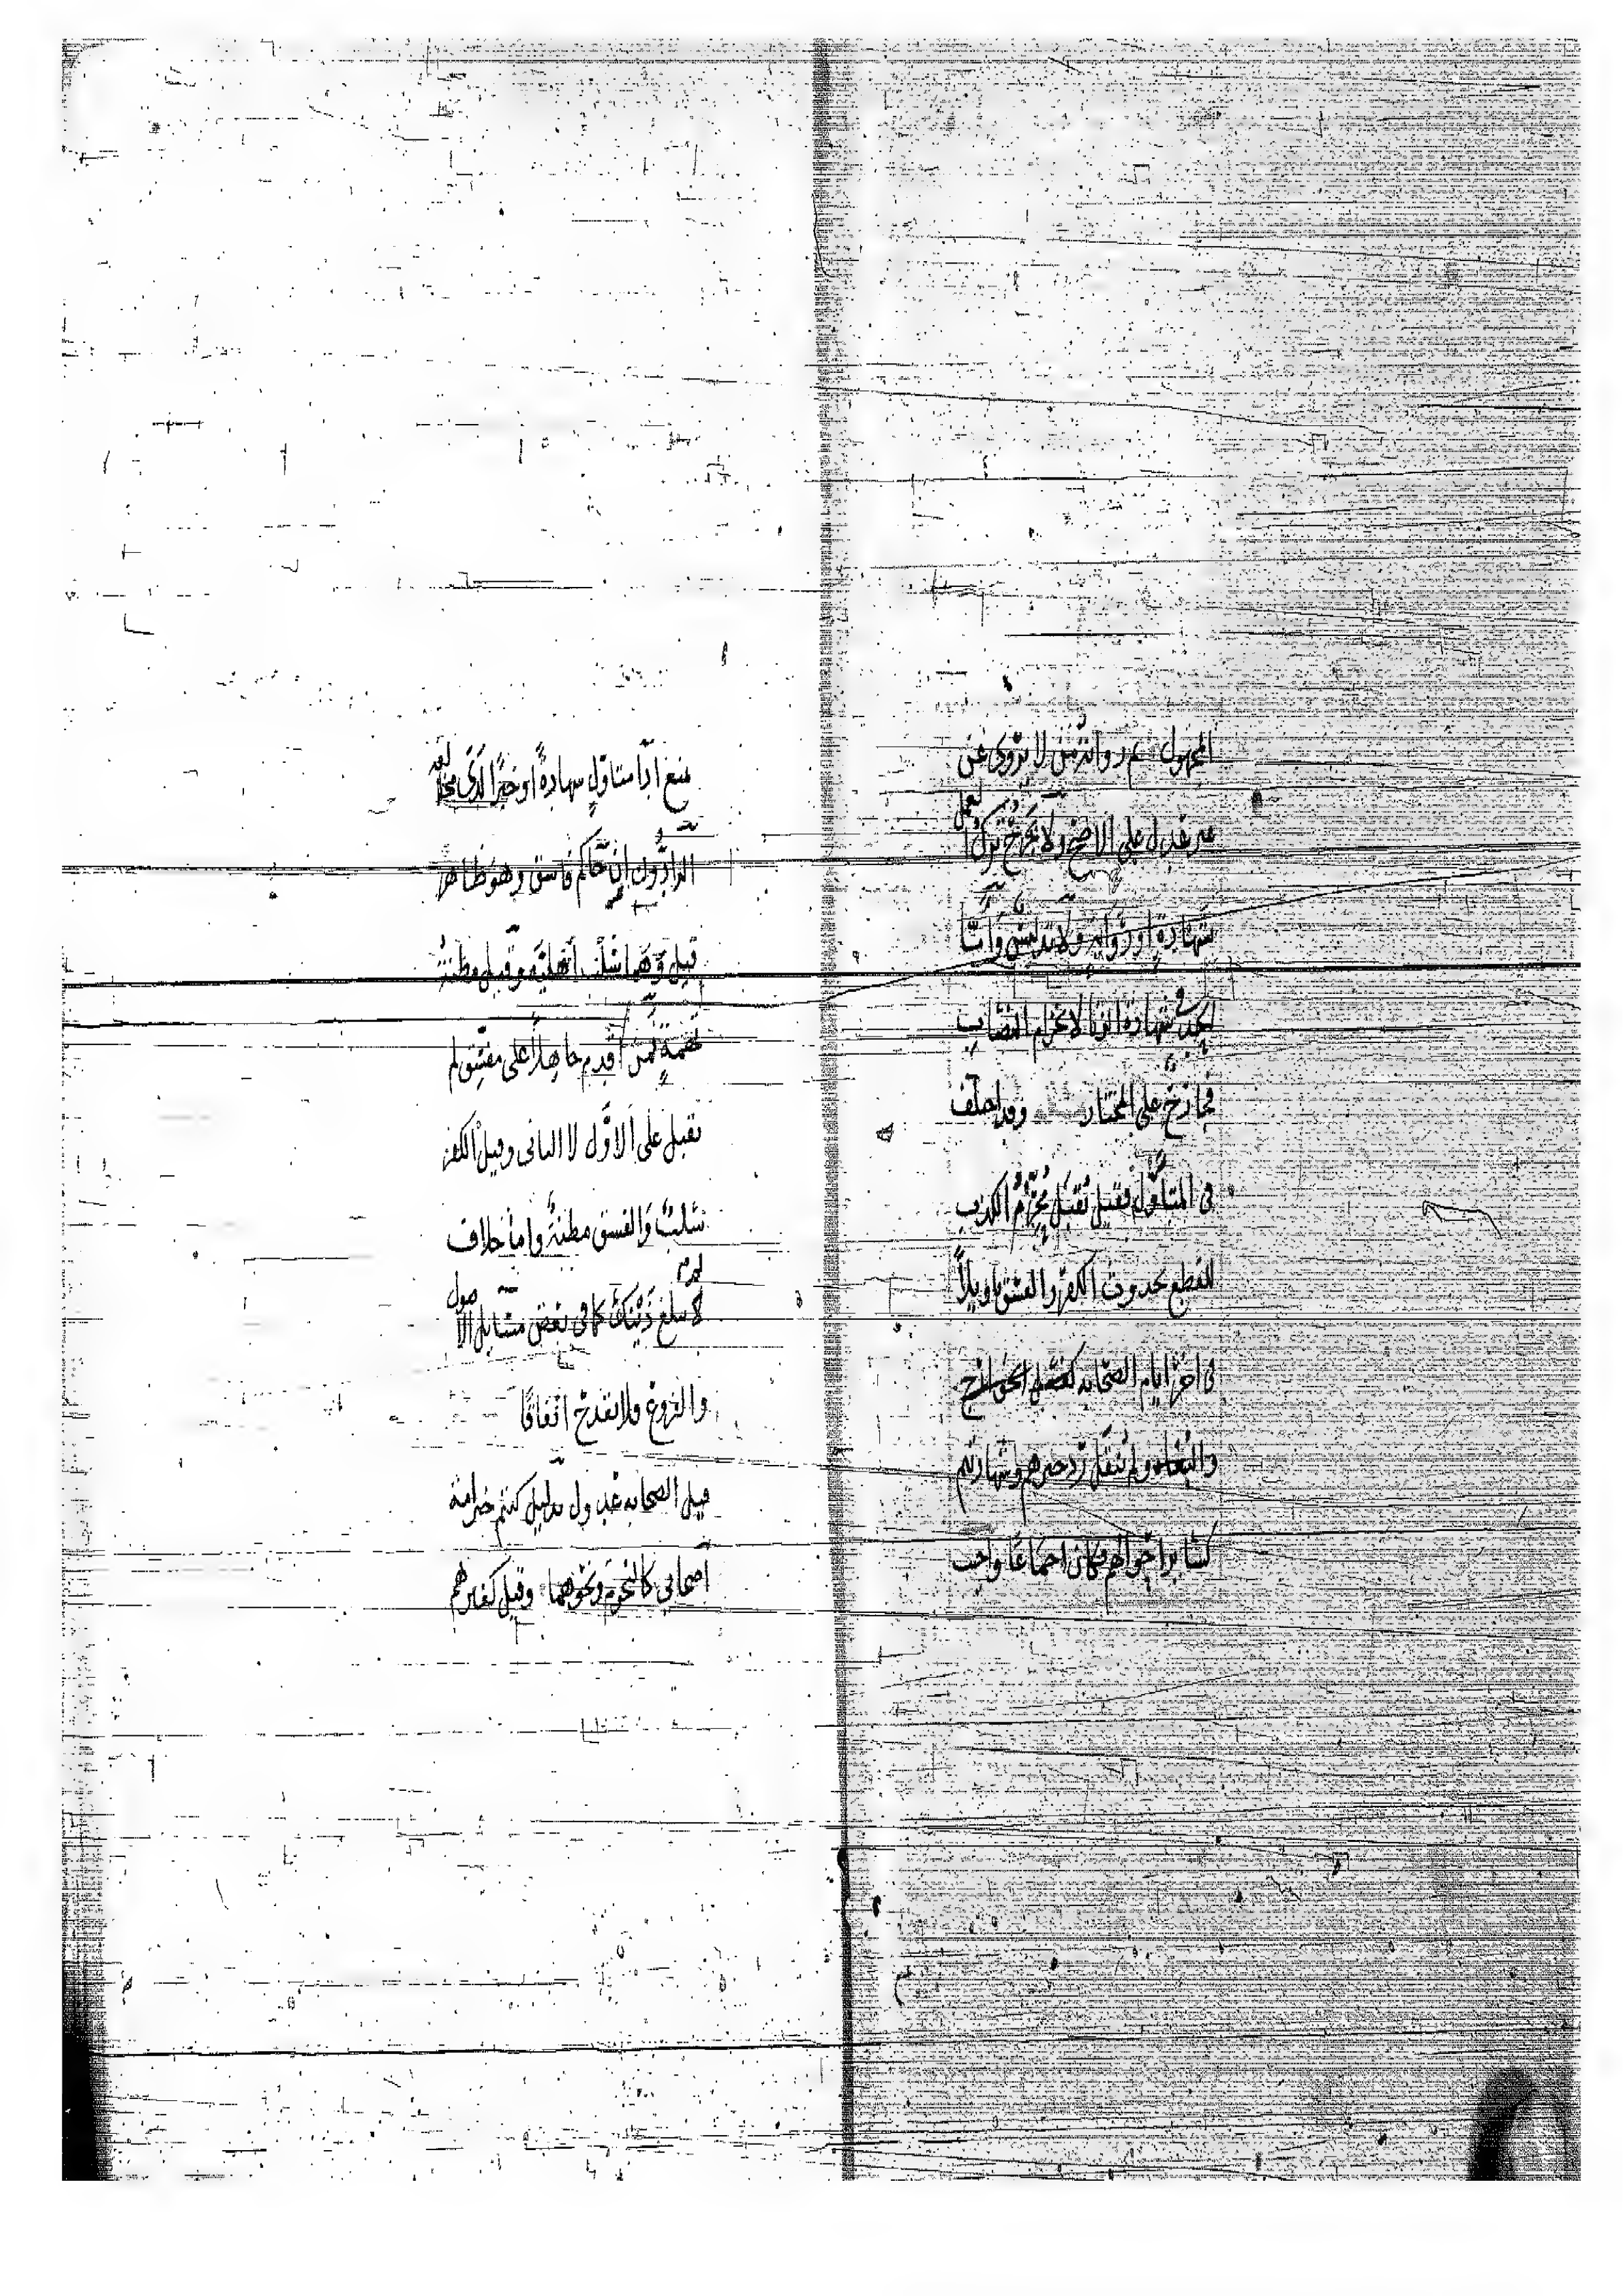 المجهول ثم رواية من لا يروى عن
غير عدل على الاصح ولا بجرح ترك العمل
شهادة او رواية ولا تدليس وأما
الحد في شهادة الزنا لانخرام النصاب
فجارح على المختار وقد اختلف
في المتأول فقيل يقبل محرم الكذب
للقطع بحدوث الكفر والفسق تأويلا
في اخر ايام الصحابه كفعل الخوارج
والبغاه ولم ينقل رد خبرهم وشهادتهم
كسائر احوالهم فكان اجماعا واجب
منع اذا متاول شهادة او خبرا لدى
الرادون ان حاكم فاسق وهو ظاهر
قيل وهما سلب أهلية وقيل مظنة
تهمة فمن أقدم جاهلا على مفسق لم
يقبل على الاول لا الثاني وقيل الكفر
سلب والفسق مظنة واما خلاف
لا يبلغ ذينك كما في بعض مسايل الاصول
والفروع فلا يقدح اتفاقا
قيل الصحابه عدول بدليل كنتم خير امة
أصحابي كالنجوم ونحوهما وقيل كغيرهم